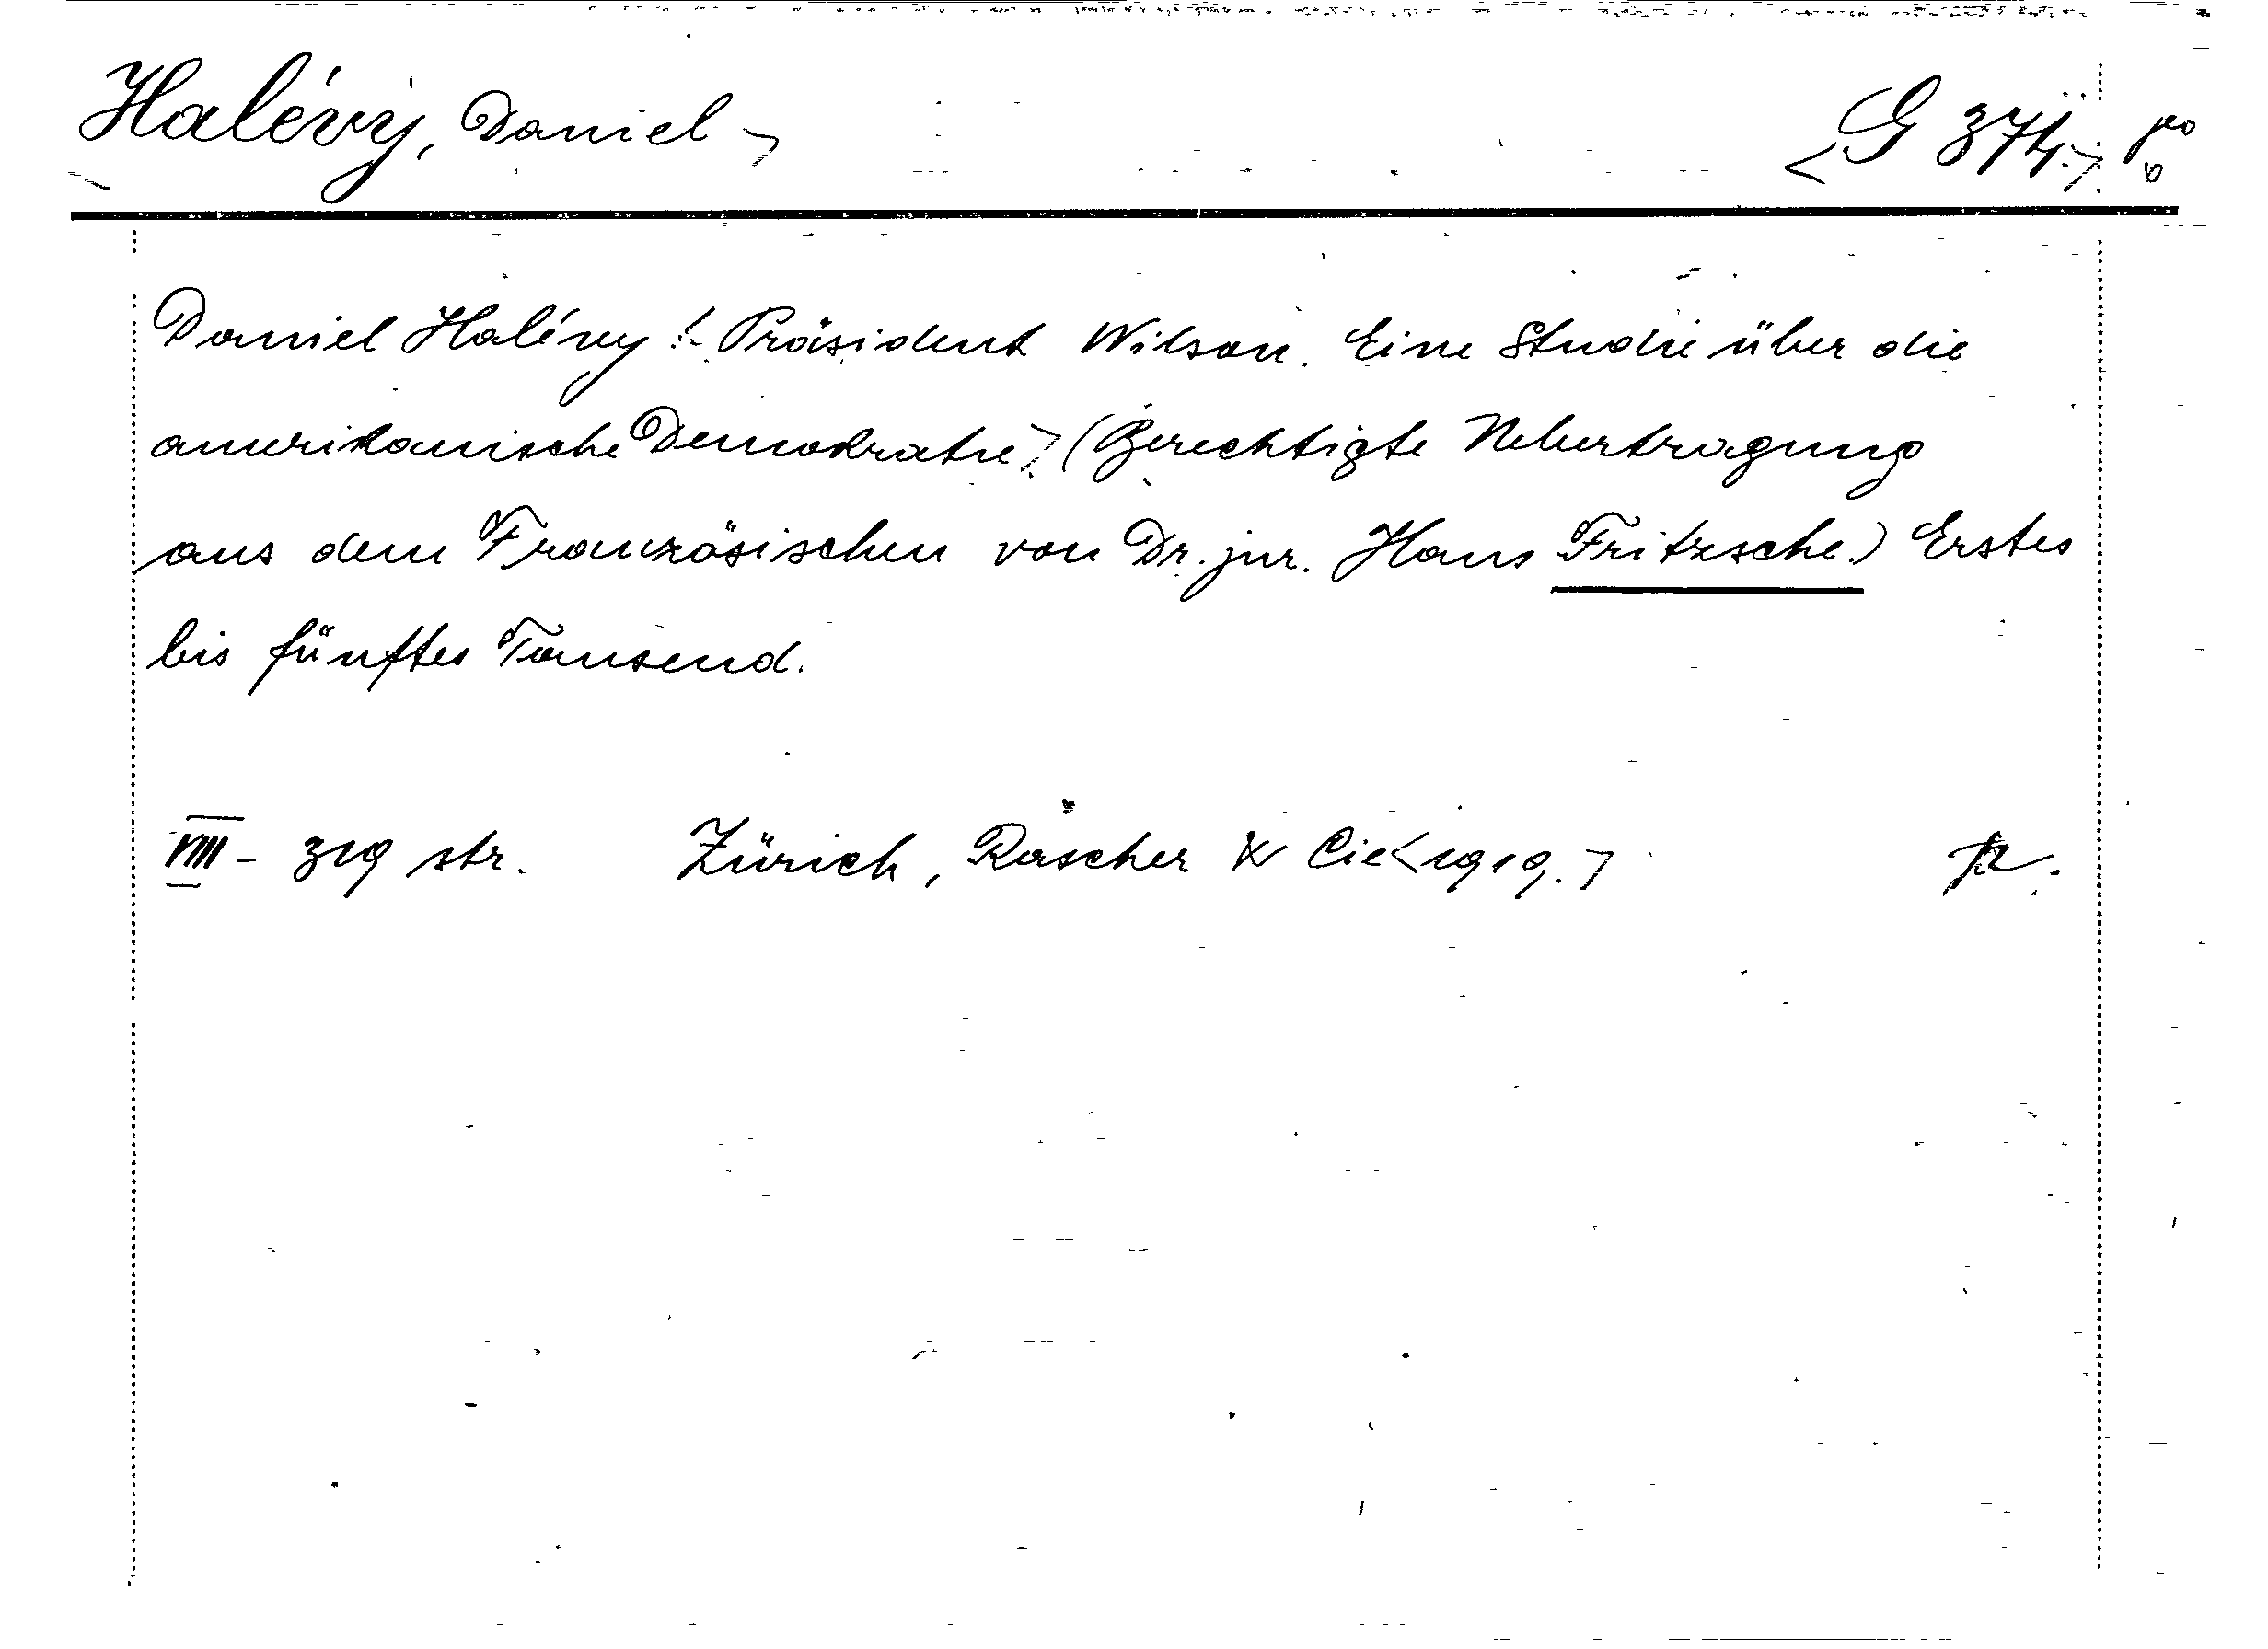 Halévy, Daniel
G 374.
Daniel Halévy : Präsident Wilson. Eine Studie über die
amerikanische Demokratie. (Berechtigte Uebertragung
aus dem Französischen von Dr. jur. Hans Fritzsche.) Erstes
bis fünftes Tausend.
VIII - 319 str. Zürich, Rascher & Cie <1919.>